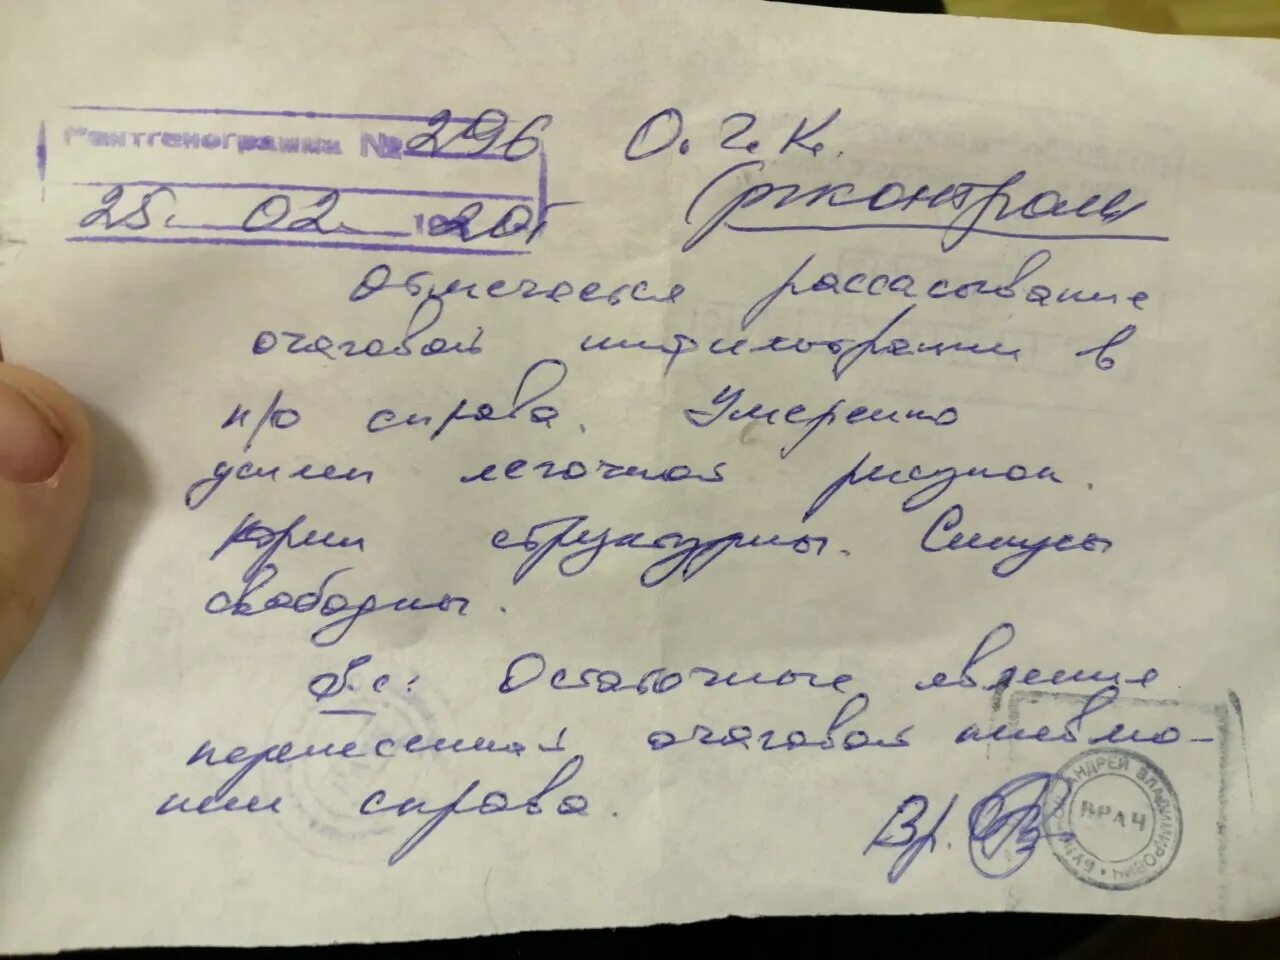 Рентгенограмма № 296 О. Г. К.
25. 02. 1920г (ргконтроль)
Отмечается рассасывание
очаговой инфильтрации в
н/о справа. Умеренно
усилен легочной рисунок.
Корни структурны. Синусы
свободны.
З.с: Остаточные явления
перенесенной очаговой пневмо-
нии справа.
Вр.
АНДРЕЙ ВЛАДИМИРОВИЧ
ВРАЧ